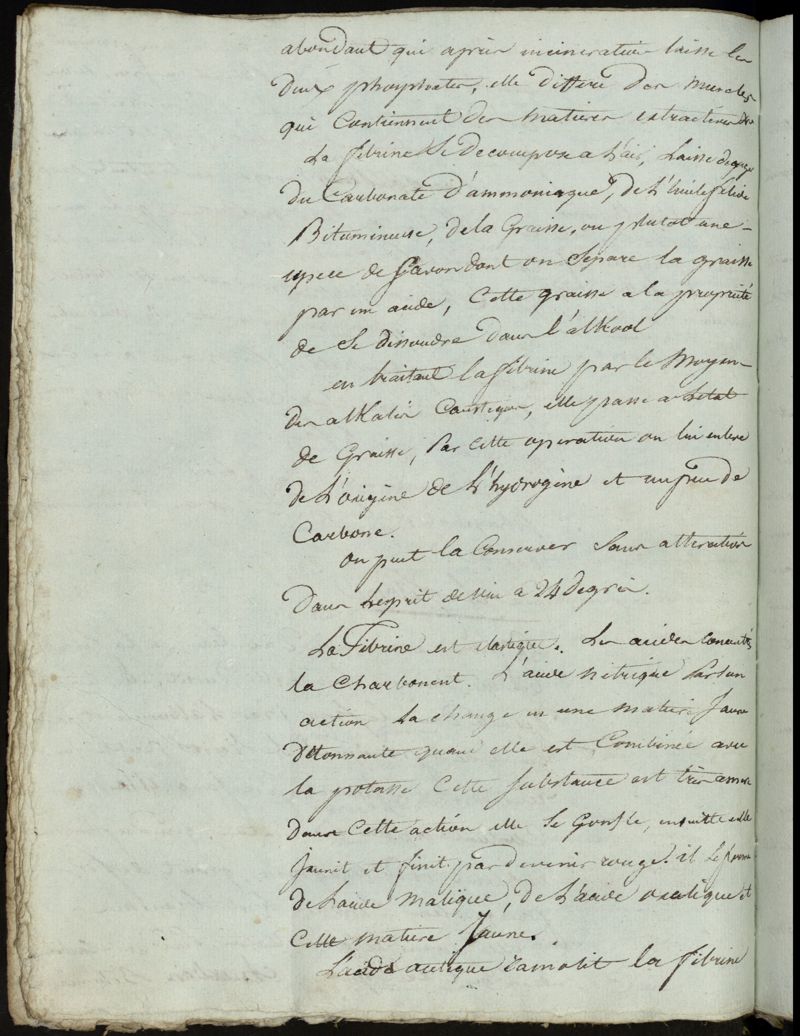 abondant qui après incineration laisse les
deux phosphates, elle differe des muscles
qui Contiennent des matieres extractives &c
La fibrine Se decompose a l'air, Laisse degager
du Carbonate d'ammoniaque, de L'huile fetide
Bitumineuse, de la Graisse, ou plutot une
espece de Savon dont on Separe la graisse
par un acide, Cette graisse a la propriété
de Se dissoudre dans l'alkool
en traitant la fibrine par le Moyen
des alkalis Caustiques, elle passe a l'etat
de Graisse, Par cette operation on lui enleve
de L'origine de L'hydrogène et un peu de
Carbone.
on peut la Conserver Sans alteration
Dans Lesprit de vin a 24 degrés.
La Fibrine est elastique. Les acides Concentrés
la Charbonent. L'acide nitrique Par son
action La change en une matiere Jaune
détonnante quand elle est Combinée avec
la potasse Cette Substance est très amere
Dans Cette action elle Se Gonfle, ensuitte elle
Jaunit et finit par devenir rouge. il Se forme
de Lacide malique, de L'acide oxalique et
Cette matiere Jaune.
L'acide acetique ramolit la fibrine